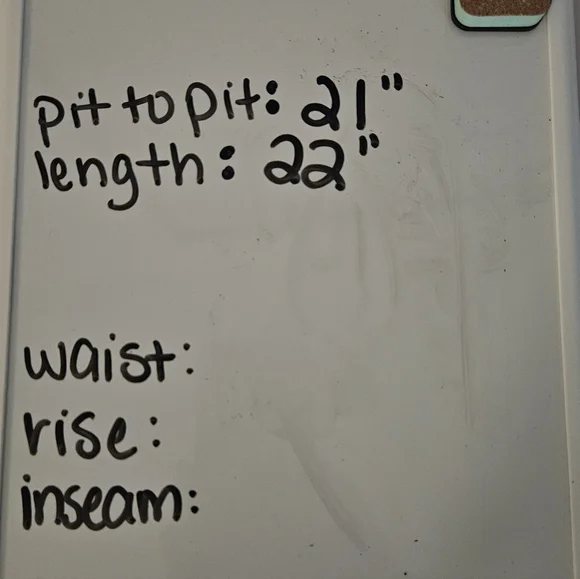 pit to pit: 21"
length: 22"
waist:
rise:
inseam: